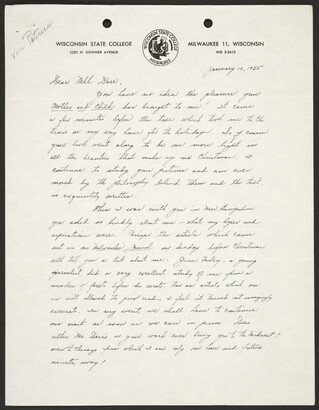 WISCONSIN STATE COLLEGE
3203 N. DOWNER AVENUE
WISCONSIN STATE COLLEGE
MILWAUKEE
MILWAUKEE 11, WISCONSIN
WO 2-8410
January 10, 1955
Dear Nell Dorr,
You have no idea the pleasure your
Mother and Child has brought to me! It came
a few minutes before the taxi which took me to the
train on my way home for the holidays. So of course
your book went along to be one more light in
all the beauties that make up our Christmas. I
continue to study your pictures and am ever
moved by the philosophy behind them and the text,
so exquisitely written.
When I was with you in New Hampshire
you asked so kindly about me - what my hopes and
aspirations were. Perhaps the article which came
out in the Milwaukee Journal on Sunday before Christmas
will tell you a bit about me. Jane Farley, a young
journalist did a very excellent study of me from a
number of facts before she wrote. For an article which one
is not allowed to proof read, I feel it turned out amazingly
accurate. In any event we shall have to continue
our visit as soon as we can in person. Does
either Mr. Dorr's or your work ever bring you to the Midwest?
even to Chicago from which I am only an hour and fifteen
minutes away!